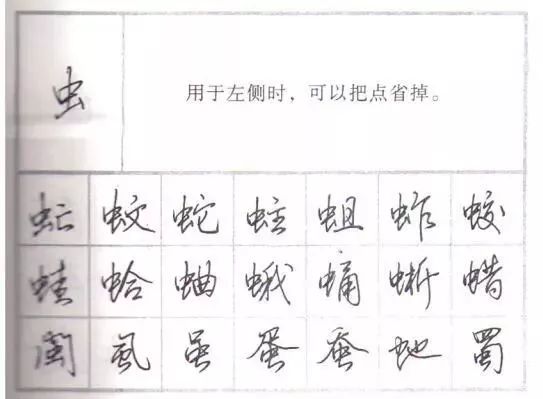 虫 用于左侧时，可以把点省掉。
虻 蚊 蛇 蛀 蛆 蚱 蛟
蛙 蛤 蛐 蛾 蛹 蜥 蜡
闽 虱 虽 蛋 蚕 蜀